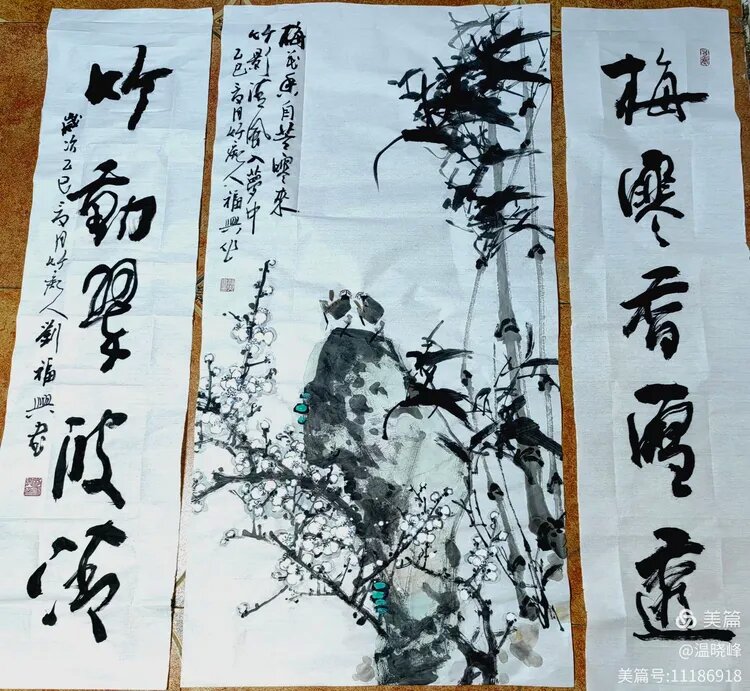 梅寒香雪
梅花香自苦寒來
竹影清風入夢中
乙巳高月竹痴人福興作
竹動翠波清
歲次乙巳高月竹痴人劉福興書
美篇
@温晓峰
美篇号:11186918